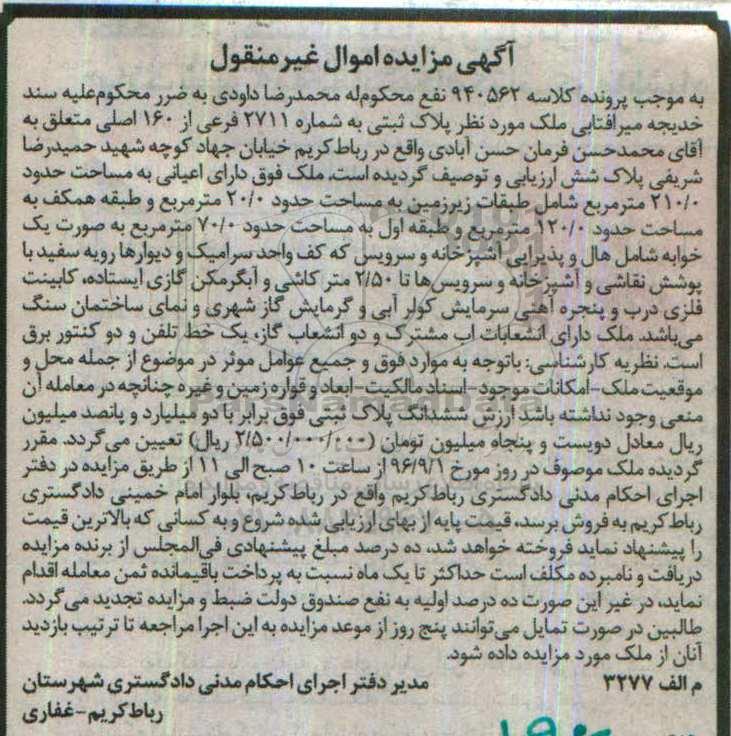 آگهی مزایده اموال غیرمنقول
به موجب پرونده کلاسه ۹۴۰۵۶۲ نفع محکوم‌له محمدرضا داودی به ضرر محکوم‌علیه سند
خدیجه میرافتابی ملک مورد نظر پلاک ثبتی به شماره ۲۷۱۱ فرعی از ۱۶۰ اصلی متعلق به
آقای محمدحسن فرمان حسن آبادی واقع در رباط‌کریم خیابان جهاد کوچه شهید حمیدرضا
شریفی پلاک شش ارزیابی و توصیف گردیده است. ملک فوق دارای اعیانی به مساحت حدود
۲۱۰/۰ مترمربع شامل طبقات زیرزمین به مساحت حدود ۲۰/۰ مترمربع و طبقه همکف به
مساحت حدود ۱۲۰/۰ مترمربع و طبقه اول به مساحت حدود ۷۰/۰ مترمربع به صورت یک
خوابه شامل هال و پذیرایی آشپزخانه و سرویس که کف واحد سرامیک و دیوارها رویه سفید با
پوشش نقاشی و آشپزخانه و سرویس‌ها تا ۲/۵۰ متر کاشی و آبگرمکن گازی ایستاده، کابینت
فلزی درب و پنجره آهنی سرمایش کولر آبی و گرمایش گاز شهری و نمای ساختمان سنگ
می‌باشد. ملک دارای انشعابات آب مشترک و دو انشعاب گاز، یک خط تلفن و دو کنتور برق
است. نظریه کارشناسی: باتوجه به موارد فوق و جمیع عوامل موثر در موضوع از جمله محل و
موقعیت ملک-امکانات موجود-اسناد مالکیت-ابعاد و قواره زمین و غیره چنانچه در معامله آن
منعی وجود نداشته باشد ارزش ششدانگ پلاک ثبتی فوق برابر با دو میلیارد و پانصد میلیون
ریال معادل دویست و پنجاه میلیون تومان (۲/۵۰۰/۰۰۰/۰۰۰ ریال) تعیین می‌گردد. مقرر
گردیده ملک موصوف در روز مورخ ۹۶/۹/۱ از ساعت ۱۰ صبح الی ۱۱ از طریق مزایده در دفتر
اجرای احکام مدنی دادگستری رباط‌کریم واقع در رباط‌کریم، بلوار امام خمینی دادگستری
رباط‌کریم به فروش برسد، قیمت پایه از بهای ارزیابی شده شروع و به کسانی که بالاترین قیمت
را پیشنهاد نماید فروخته خواهد شد، ده درصد مبلغ پیشنهادی فی‌المجلس از برنده مزایده
دریافت و نامبرده مکلف است حداکثر تا یک ماه نسبت به پرداخت باقیمانده ثمن معامله اقدام
نماید، در غیر این صورت ده درصد اولیه به نفع صندوق دولت ضبط و مزایده تجدید می‌گردد.
طالبین در صورت تمایل می‌توانند پنج روز از موعد مزایده به این اجرا مراجعه تا ترتیب بازدید
آنان از ملک مورد مزایده داده شود.
م الف ۳۲۷۷ مدیر دفتر اجرای احکام مدنی دادگستری شهرستان
رباط‌کریم-غفاری